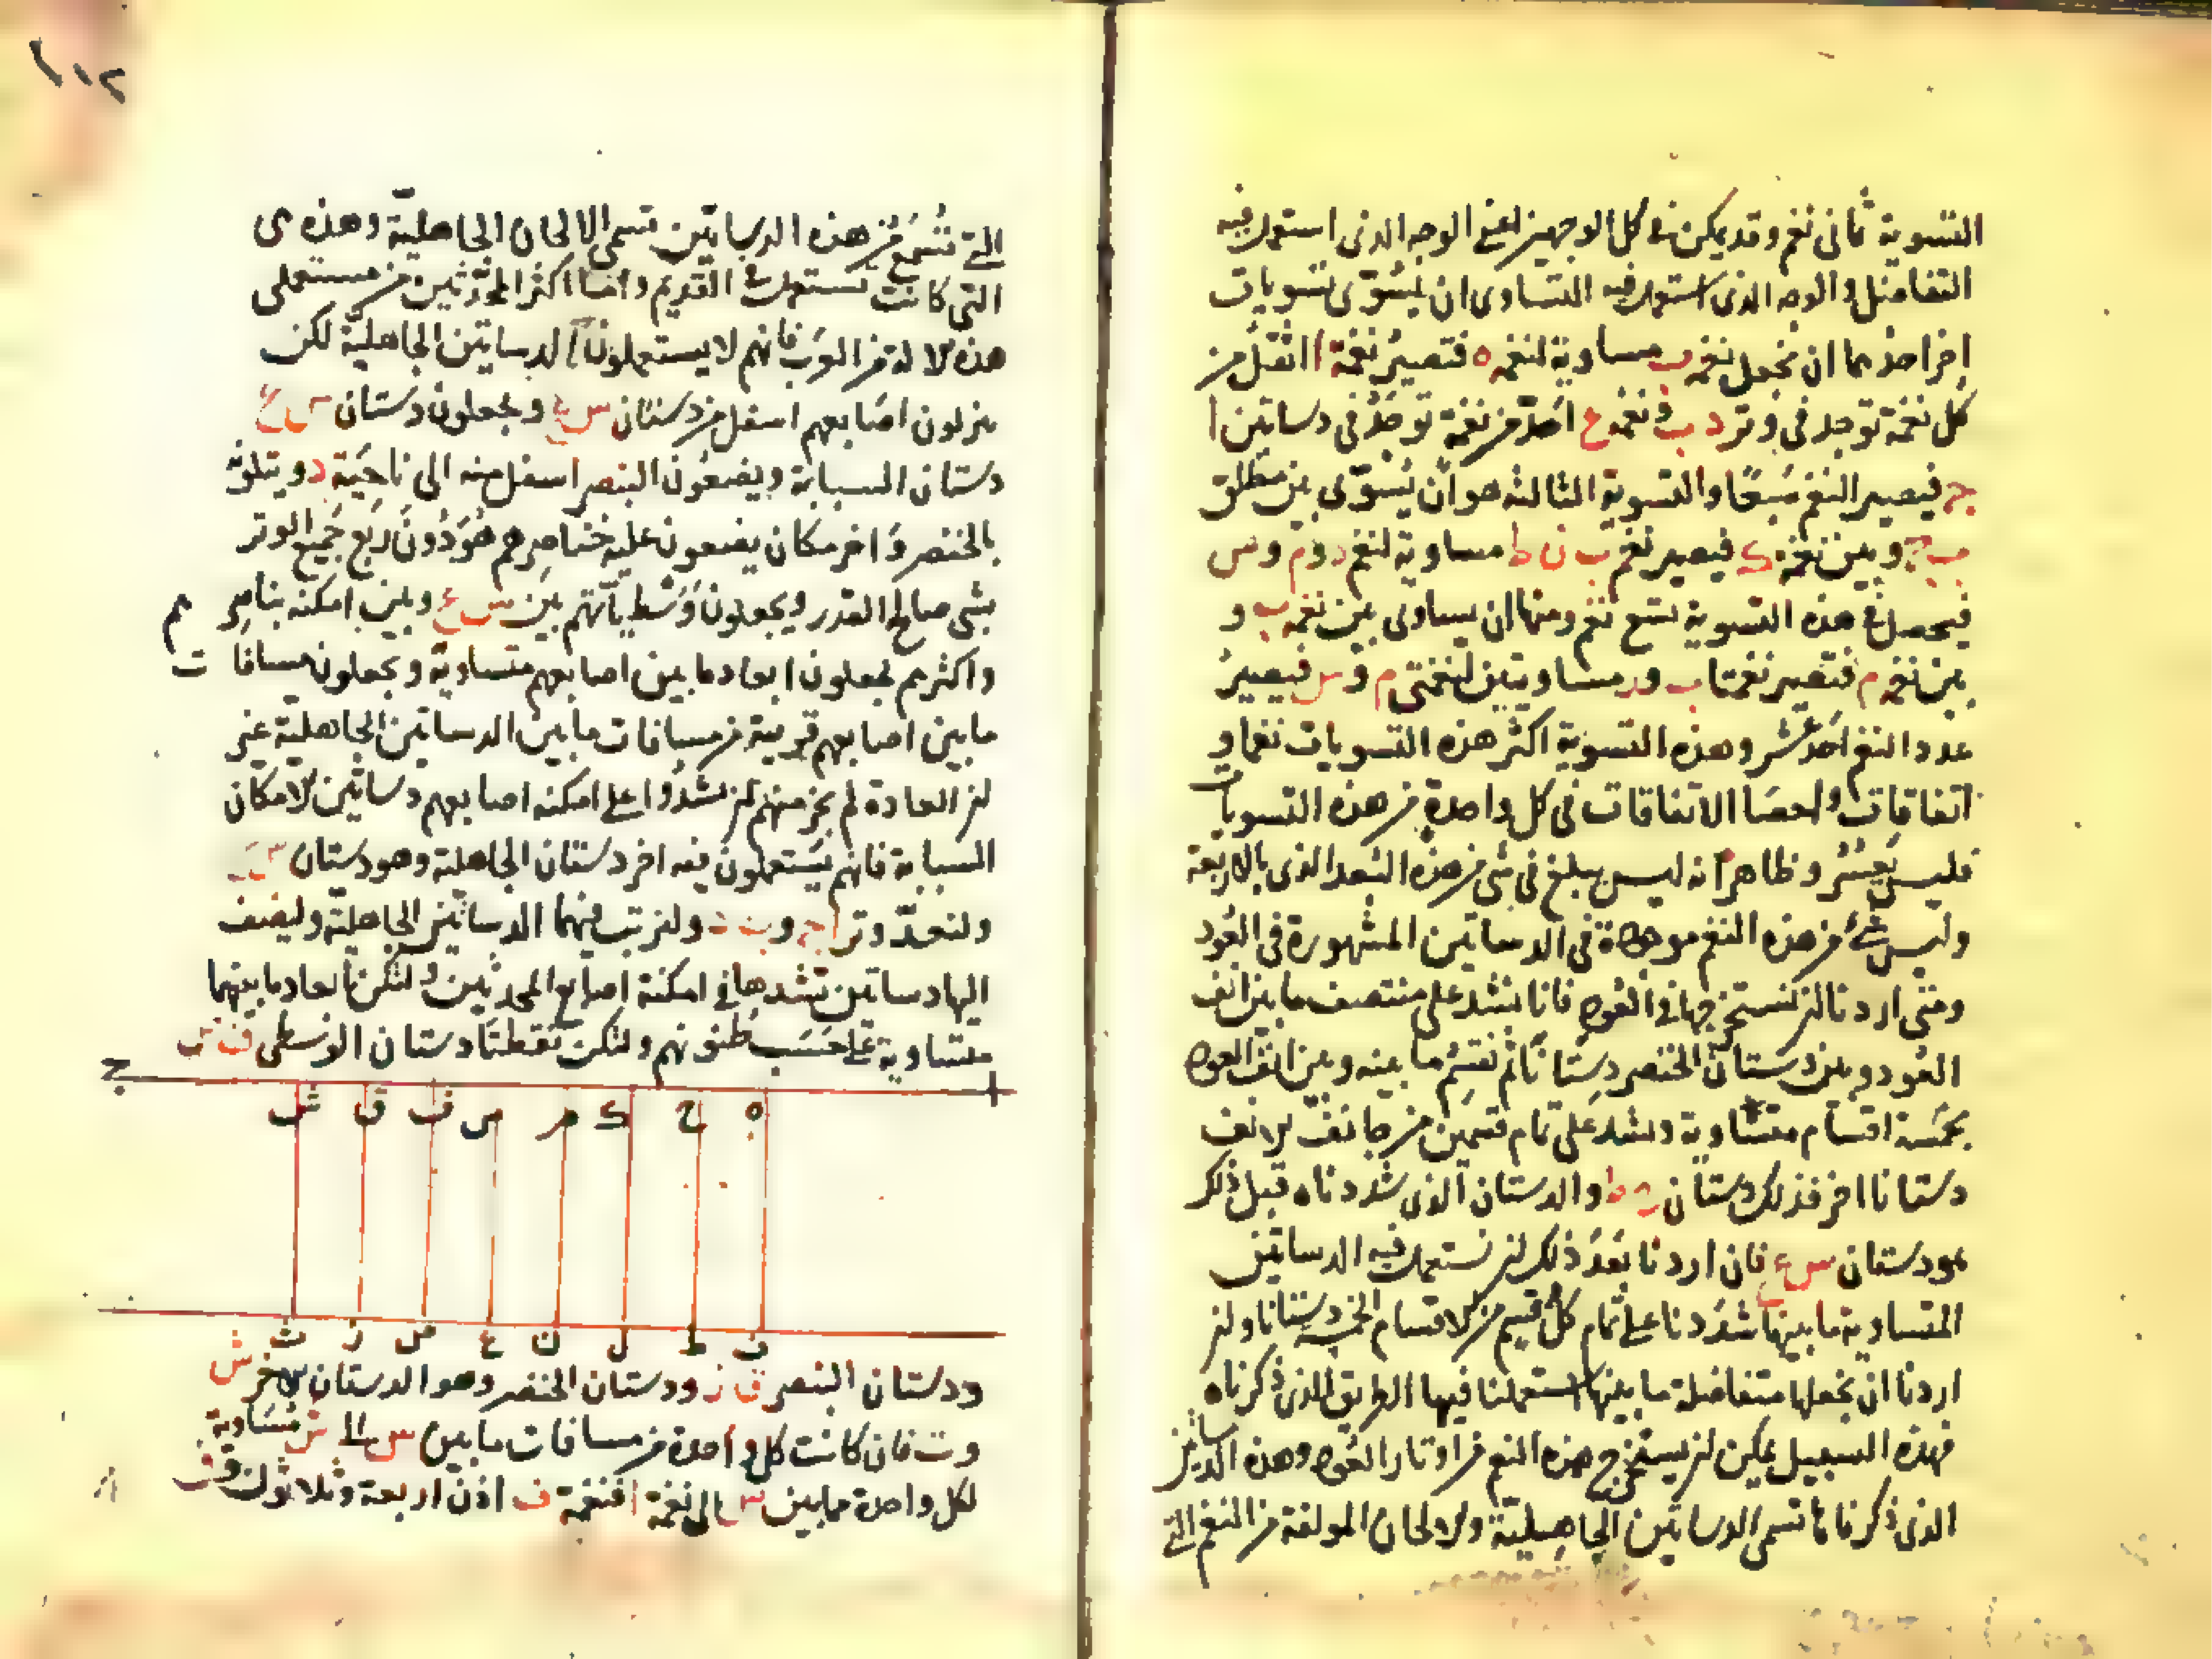 التسوية ثمانى نغم وقد يمكن فى كل الوجهين اعنى الوجه الذى استعمل فيه
التفاضل والوجه الذى استعمل فيه التساوى ان يسوى تسويات
اخر احدهما ان نجعل نغمة ب مساوية لنغمة ه فتصير نغمة ا اثقل من
كل نغمة توجد فى وتر د ب ونغمة ع احد من نغمة توجد فى دساتين ا
ج فيصير النغم سبعا والتسوية الثالثة هو ان يسوى بين مطلق
ب د وبين نغمة ك فيصير نغم ب ن ط مساوية لنغم د و م و س
فيحصل فى هذه التسوية تسع نغم ومنها ان يساوى بين نغمة ب و
بين نغمة م فتصير نغمتا ب و ر مساويتين لنغمتى م و س فيصير
عدد النغم احد عشر وهذه التسوية اكثر هذه التسويات نغما و
اتفاقات واحصا الاتفاقات فى كل واحدة من هذه التسويات
فليس يعسر وظاهر انه ليس يبلغ فى شى من هذه البعد الذى بالاربعة
وليس شئ من هذه النغم موجودة فى الدساتين المشهورة فى العود
ومتى اردنا ان نستخرجها فى العود فانا نشد على منتصف ما بين انف
العود وبين دستان الخنصر دستانا ثم نقسم ما بينه وبين انف العود
بخمسة اقسام متساوية ونشد على تمام قسمين من جانب الانف
دستانا اخر فذلك دستان ح ط والدستان الذى شددناه قبل ذلك
هو دستان س ع فان اردنا بعد ذلك ان نستعمل فيه الدساتين
المتساوية ما بينها شددنا على تمام كل قسم من الاقسام الخمسة دستانا وان
اردنا ان نجعلها متفاضلة ما بينها استعملنا فيها الطريق الذى ذكرناه
فهذه السبيل يمكن ان يستخرج هذه النغم من اوتار العود وهذه الدساتين
الذى ذكر فانها تسمى الدساتين الجاهلية والالحان المولفة من النغم التى
١٠٢
التى تسمع من هذه الدساتين تسمى الالحان الجاهلية وهذه هى
التى كانت تستعمل فى القديم واما اكثر المحدثين من مستعملى
هذه الالة من العرب فانهم لا يستعملون الدساتين الجاهلية لكن
ينزلون اصابعهم اسفل من دستان س ع ويجعلون دستان س ع
دستان السبابة ويضعون البنصر اسفل منه الى ناحية د ويتلوه
بالخنصر واخر مكان يضعون عليه خناصرهم هو دون ربع جميع الوتر
بشى صالح القدر ويجعلون وسطياتهم بين س ع وبين امكنة بناصرهم
واكثرهم يجعلون ابعاد ما بين اصابعهم متساوية ويجعلون مسافات
ما بين اصابعهم قريبة من مسافات ما بين الدساتين الجاهلية غير
ان العادة لم تجر منهم ان يشدوا على امكنة اصابعهم دساتين الا مكان
السبابة فانهم يستعملون فيه اخر دستان الجاهلية وهو دستان س ع
ولنعد وتر ا ج و ب د ولنرتب فيهما الدساتين الجاهلية ولنضف
اليها دساتين نشدها فى امكنة اصابع المحدثين ولتكن ابعاد ما بينهما
متساوية على حسب ظنونهم ولتكن نقطتا دستان الوسطى ف ص
ج ا
ه ح ك م س ف ق ش
ب ط ل ن ع ص ر ت
ودستان البنصر ق ر ودستان الخنصر وهو الدستان الاخر ش
وت فان كانت كل واحدة من مسافات ما بين س الى ش مساوية
لكل واحدة مما بين س الى نغمة ا فنغمة ف اذن اربعة وثلاثون وق